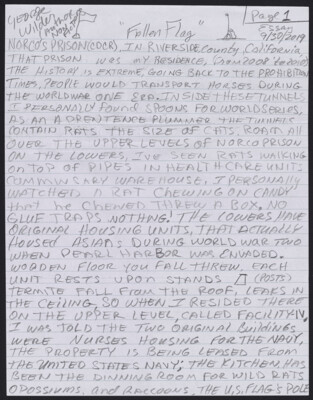 George
"Fallen Flag"
Page 1
Essay
9/30/2019
NORCO PRISON (CDCR), IN RIVERSIDE County, California,
THAT PRISON WAS MY RESIDENCE, from 2008 to
THE HISTORY IS EXTREME, GOING BACK TO THE PROHIBITION
TIMES, PEOPLE WOULD TRANSPORT HORSES DURING
THE WORLD WAR ONE ERA. INSIDE THESE TUNNELS
I PERSONALLY FOUND SPOONS FOR WORLD SERIES,
AS AN APRENTENCE PLUMMER. THE TUNNELS
CONTAIN RATS THE SIZE OF CATS, ROAM ALL
OVER THE UPPER LEVELS OF NORCO PRISON
ON THE LOWERS, I'VE SEEN RATS WALKING
ON TOP OF PIPES IN HEALTHCARE UNITS
COMMINSARY WAREHOUSE, I PERSONALLY
WATCHED A RAT CHEWING ON CANDY
that he CHEWED THREW A BOX. NO
GLUE TRAPS NOTHING! THE LOWERS HAVE
ORIGINAL HOUSING UNITS, THAT ACTUALLY
HOUSED ASIANS DURING WORLD WAR TWO
WHEN PEARL HARBOR WAS ENVADED.
WOODEN FLOOR YOU FALL THREW. EACH
UNIT RESTS UPON STANDS (POSTS)
TERMITE FALL FROM THE ROOF, LEAKS IN
THE CEILING, SO WHEN I RESIDED THERE
ON THE UPPER LEVEL, CALLED FACILITY
I WAS TOLD THE TWO ORIGINAL BUILDINGS
WERE NURSES HOUSING FOR THE NAVY,
THE PROPERTY IS BEING LEASED FROM
THE UNITED STATES NAVY; THE KITCHEN HAS
BEEN THE DINNING ROOM FOR WILD RATS
OPOSSIUMS, and RACCOONS, THE U.S. FLAG'S POLE